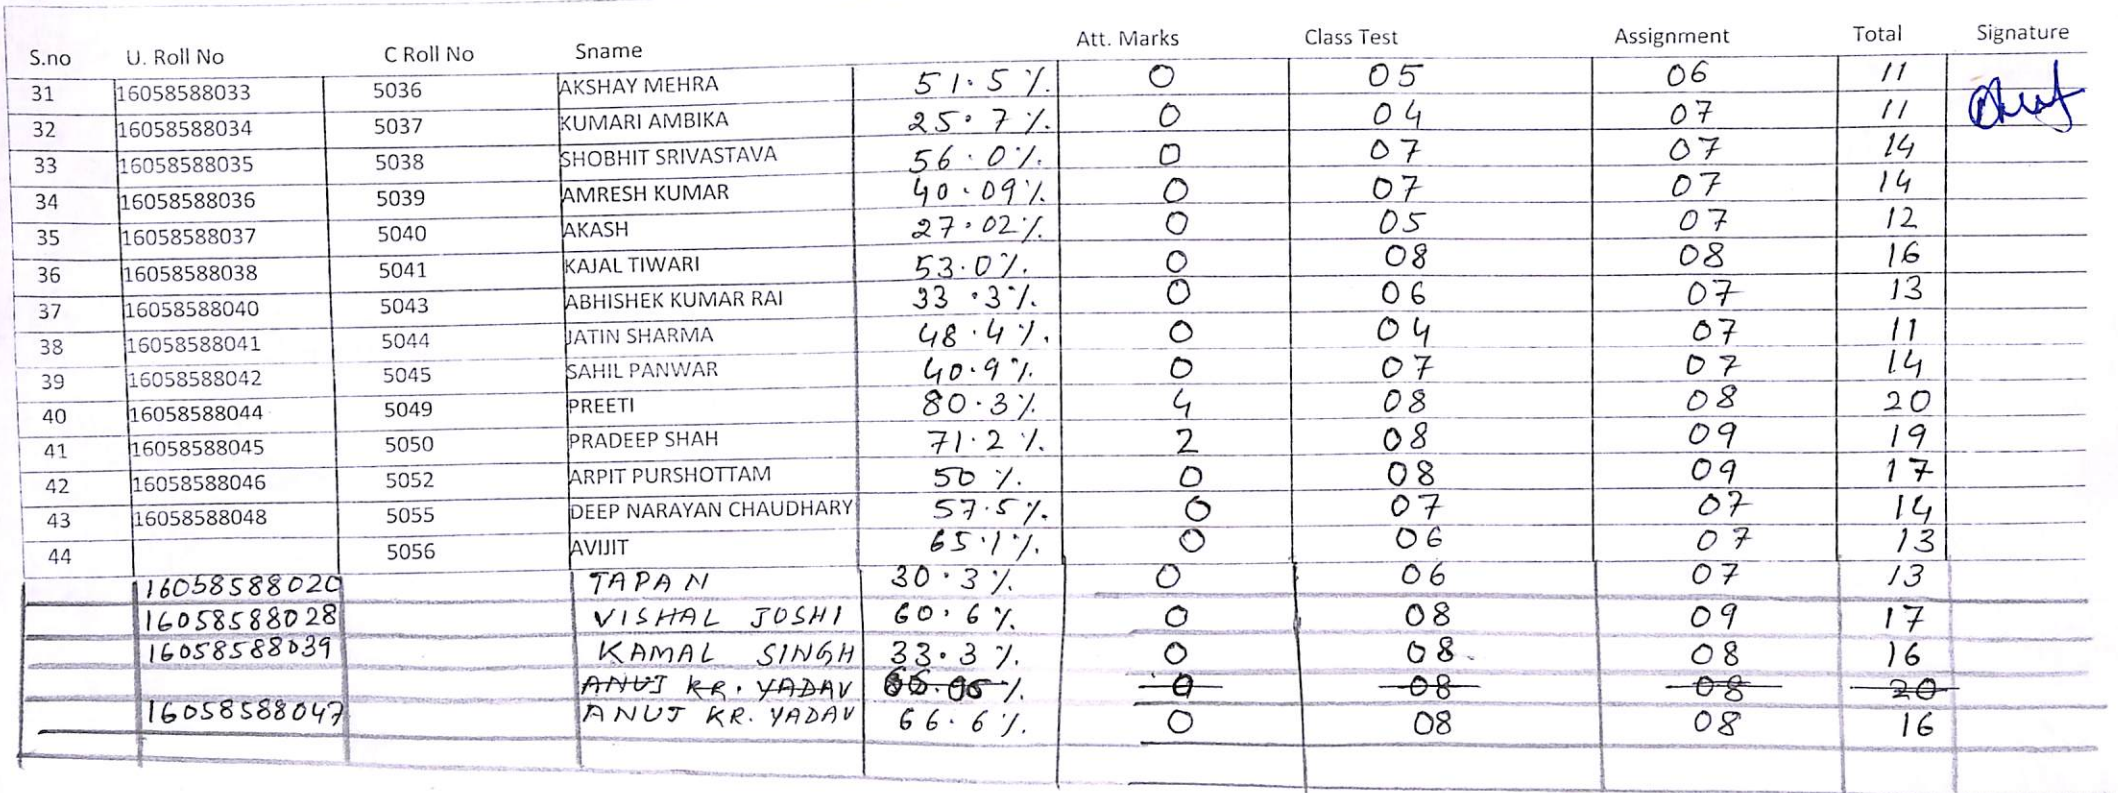 S.no U. Roll No C Roll No Sname Att. Marks Class Test Assignment Total Signature
31 16058588033 5036 AKSHAY MEHRA 51.5 % 0 05 06 11
32 16058588034 5037 KUMARI AMBIKA 25.7 % 0 04 07 11
33 16058588035 5038 SHOBHIT SRIVASTAVA 56.0 % 0 07 07 14
34 16058588036 5039 AMRESH KUMAR 40.09 % 0 07 07 14
35 16058588037 5040 AKASH 27.02 % 0 05 07 12
36 16058588038 5041 KAJAL TIWARI 53.0 % 0 08 08 16
37 16058588040 5043 ABHISHEK KUMAR RAI 33.3 % 0 06 07 13
38 16058588041 5044 JATIN SHARMA 48.4 % 0 04 07 11
39 16058588042 5045 SAHIL PANWAR 40.9 % 0 07 07 14
40 16058588044 5049 PREETI 80.3 % 4 08 08 20
41 16058588045 5050 PRADEEP SHAH 71.2 % 2 08 09 19
42 16058588046 5052 ARPIT PURSHOTTAM 50 % 0 08 09 17
43 16058588048 5055 DEEP NARAYAN CHAUDHARY 57.5 % 0 07 07 14
44 5056 AVIJIT 65.1 % 0 06 07 13
16058588020 TAPAN 30.3 % 0 06 07 13
16058588028 VISHAL JOSHI 60.6 % 0 08 09 17
16058588039 KAMAL SINGH 33.3 % 0 08 08 16
ANUJ KR. YADAV % 08 08 20
16058588047 ANUJ KR. YADAV 66.6 % 0 08 08 16